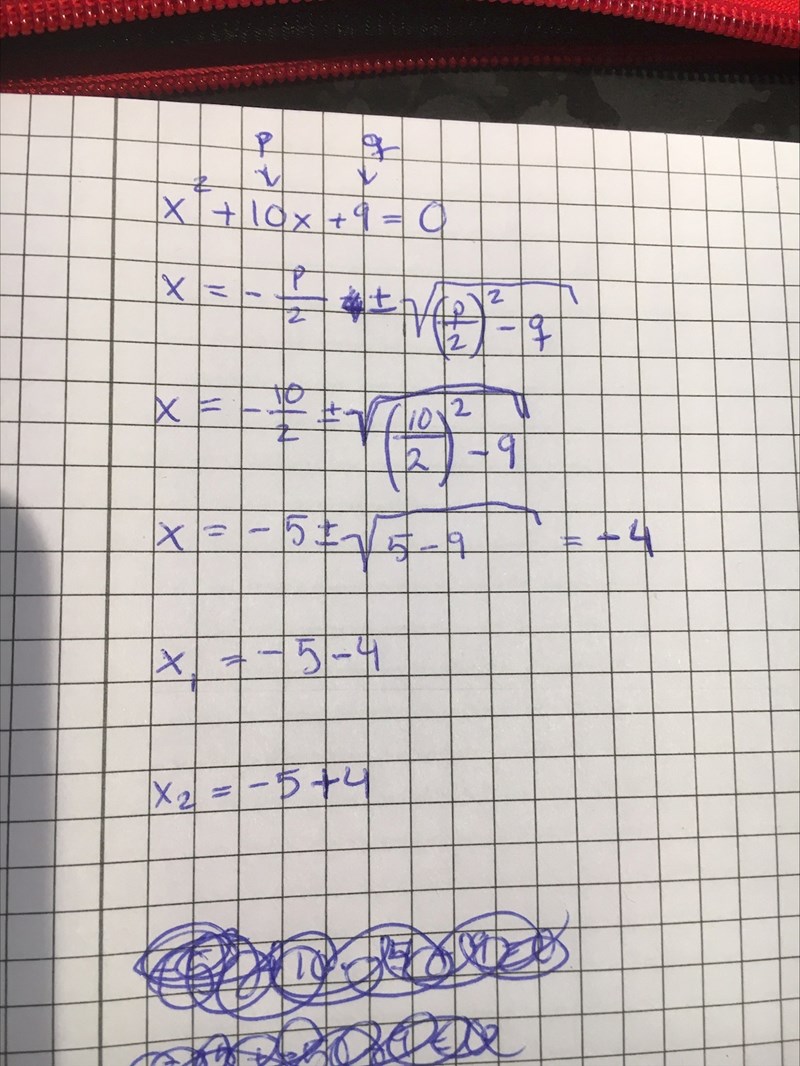 p q
↓ ↓
x² + 10x + 9 = 0
x = - p/2 ± √((p/2)² - q)
x = - 10/2 ± √((10/2)² - 9)
x = - 5 ± √(5 - 9) = -4
x₁ = -5 - 4
x₂ = -5 + 4